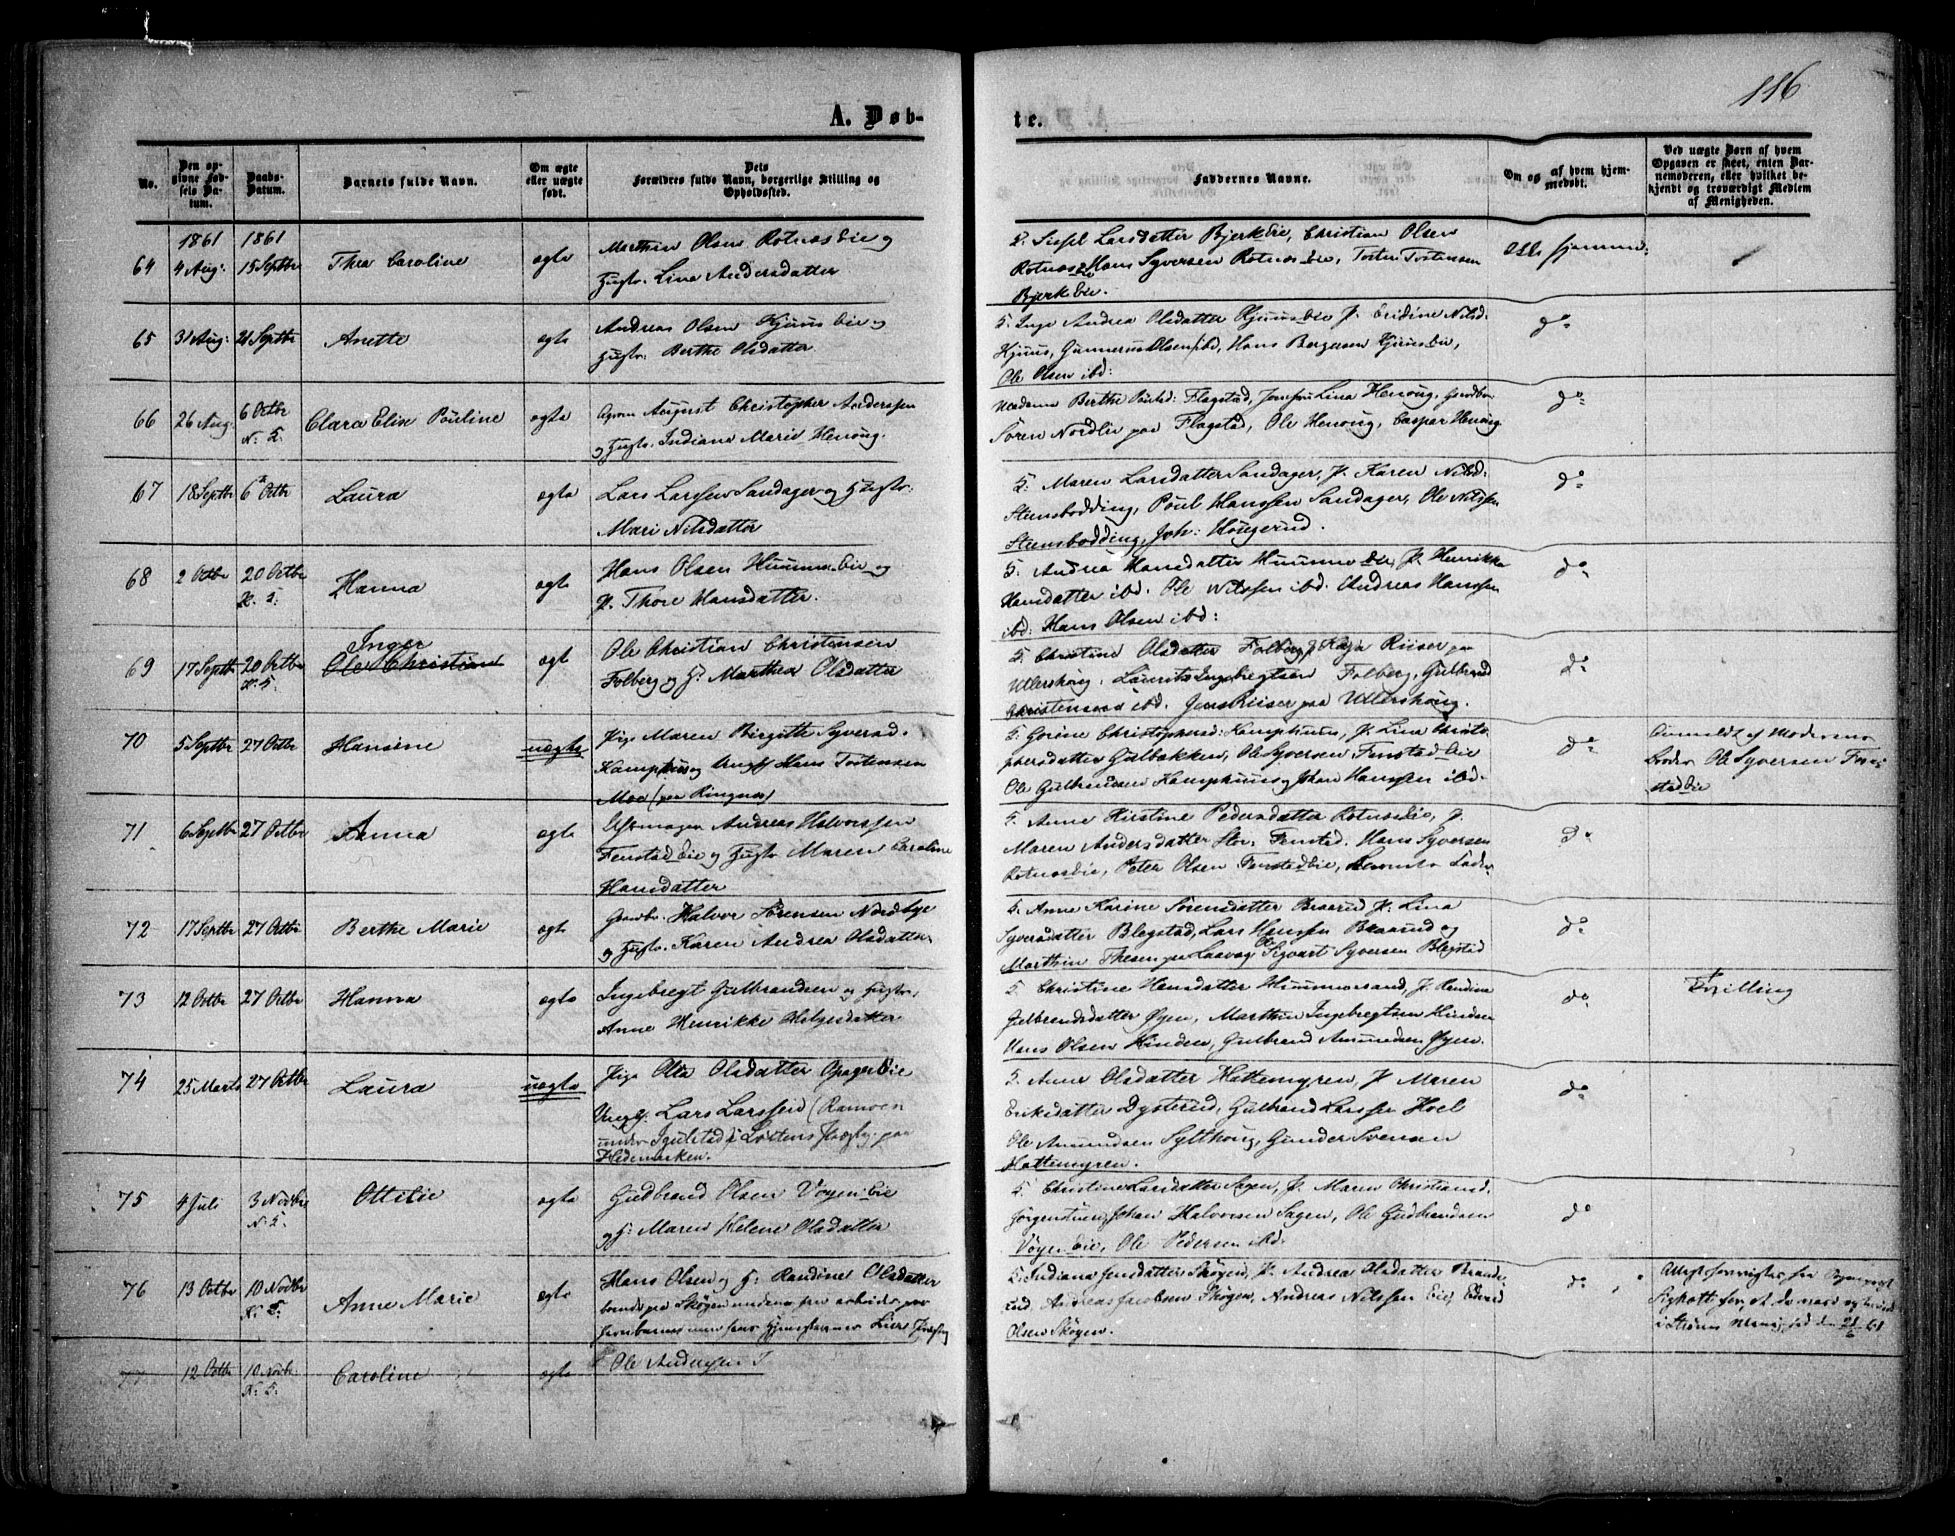 116
A. Døb-
te.
No.
Den op-
givne Fød-
sels Da-
tum.
Daabs-
Datum.
Barnets fulde Navn.
Om ægte
eller uægte
født.
Dets
Forældres fulde Navn, borgerlige Stilling og
Opholdssted.
Faddernes Navne.
Om og af hvem hjem-
medøbt.
Ved uægte Børn af hvem
Opgaven er skeet, enten Bar-
nemoderen, eller hvilket be-
kjendt og troværdigt Medlem
af Menigheden.
1861 1861
64 4 Aug: 15 Septbr Thea Caroline ægte
Marthin Olsen Rotnæs Eie og
Hustr. Lina Andersdatter
F. Sissel Larsdatter Bjerk Eie, Christian Olsen
Rotnæs Hans Syversen Rotnæs Eie, Torsten Torstensen
Bjerk Eie.
Alle hjemme
65 31 Aug: 21 Septbr Anette ægte
Andreas Olsen Kjuus Eie og
Hustr: Berthe Olsdatter
F. Inge Andrea Olsdatter Kjuus Eie P. Nilsd.
Kjuus, Gunnerus Olsen ibd, Hans Bergersen Kjuus Eie,
Ole Olsen ibd:
do
66 26 Aug. 6 Octbr N. 5. Clara Elise Pouline ægte
August Christopher Anderssen
og Hustr. Indiana Marie Henoug.
Madame Berthe Flagstad, Jomfru Lina Henoug,
Søren Nordlie paa Flagstad, Ole Henoug, Caspar Henoug
do
67 18 Septbr 6 Octbr Laura ægte
Lars Larssen Sandager og Hustr.
Mari Nilsdatter
F. Maren Larsdatter Sandager, P. Karen Nilsd:
Steensbodding, Poul Hanssen Sandager, Ole Nilssen
Steensbodding, Joh: Hougerud.
do
68 2 Octbr 20 Octbr N. 5. Hanna ægte
Hans Olsen Hummer Eie og
H. Thore Hansdatter.
F. Andrea Hansdatter Hummer Eie, P. Henrikke
Hansdatter ibd. Ole Nilssen ibd. Andreas Hanssen
ibd: Hans Olsen ibd:
do
Inger
69 17 Septbr 20 Octbr N. 5. Ole Christian ægt
Ole Christian Christensen
Folberg og H. Marthea Olsdatter
F. Christine Olsdatter Folberg, P. Kaja Riiser paa
Ullershoug. Laurits Ingebregtsen Folberg, Gulbrand
Christensen ibd. Jens Riiser paa Ullershoug.
do
70 5 Septbr 27 Octbr Hansine uægte
Pige Maren Birgitte Syversd.
Kamphus og Ungk Hans Torstensen
Moe (paa Ringnæs)
F. Gorine Christophersd: Kamphuus, P. Lina Christo-
phersdatter Gulbakken, Ole Syversen Fenstad Eie
Ole Gulbrandsen Kamphuus og Johan Hanssen ibd.
do
Anmeldt af Moderens
Broder Ole Syversen Fen-
stad Eie
71 6 Septbr 27 Octbr Anna ægte
Andreas Halvorssen
Fenstad Eie og Hustr Maren Caroline
Hansdatter
F. Anne Kirstine Pedersdatter Rotnæs Eie, P.
Maren Andersdatter Stor. Fenstad. Hans Syversen
Rotnæs Eie, Peter Olsen Fenstad Eie,
do
72 17 Septbr 27 Octbr Berthe Marie ægt
Gaardbr. Halvor Sørensen Nordbye
og Hustr. Karen Andrea Olsdatter
F. Anne Karine Sørensdatter Braarud P. Lina
Syversdatter Blegstad, Lars Hanssen Braarud og
Marthin Thesen paa Laavag Sigvart Syversen Blegstad
do
73 12 Octbr 27 Octbr Hanna ægte
Ingebregt Gulbrandsen og Hustr.
Anne Henrikke Helgesdatter
F. Christine Hansdatter Hummersand, P. Randine
Gulbrandsdatter Øyen, Marthin Ingebregtsen Hinden
Hans Olsen Hinden, Gulbrand Amundsen Øyen.
do
Tvilling
74 25 Marts 27 Octbr Laura uægte
Pige Olea Olsdatter Opager Eie
Ungk. Lars Larssen (Ramoen
under Igulstad i Løitens Præstg. paa
Hedemarken.
F. Anne Olsdatter Hattemyren, P. Maren
Eriksdatter Dysterud, Gulbrand Larssen Hoel
Ole Amundsen Sylthoug, Gunder Svensen
Hattemyren.
do
75 4 Juli 3 Novbr N. 5. Ottilie ægte
Gudbrand Olsen Vøyen Eie
og H. Maren Helene Olsdatter
F. Christine Larsdatter Sagen, P. Maren Christiansd.
Jørgenstuen, Johan Halvorsen Sagen, Ole Gudbrandsen
Vøyen Eie, Ole Pedersen ibd.
do
76 13 Octbr 10 Novbr N. 5. Anne Marie ægte
Hans Olsen og H: Randine Olsdatter
boende paa Skøyen arbeider paa
Jernbanen men har Hjemsted Liers Præstg
F. Indiana Jensdatter Skøyen, P. Andrea Olsdatter Brande-
rud, Andreas Jacobsen Skøyen, Andreas Nilssen Eie, Edvard
Olsen Skøyen.
do
i Strøms Menighed den 21/6 61
77 12 Octbr 10 Novbr N. 5. Caroline ægte
Ole Andersen